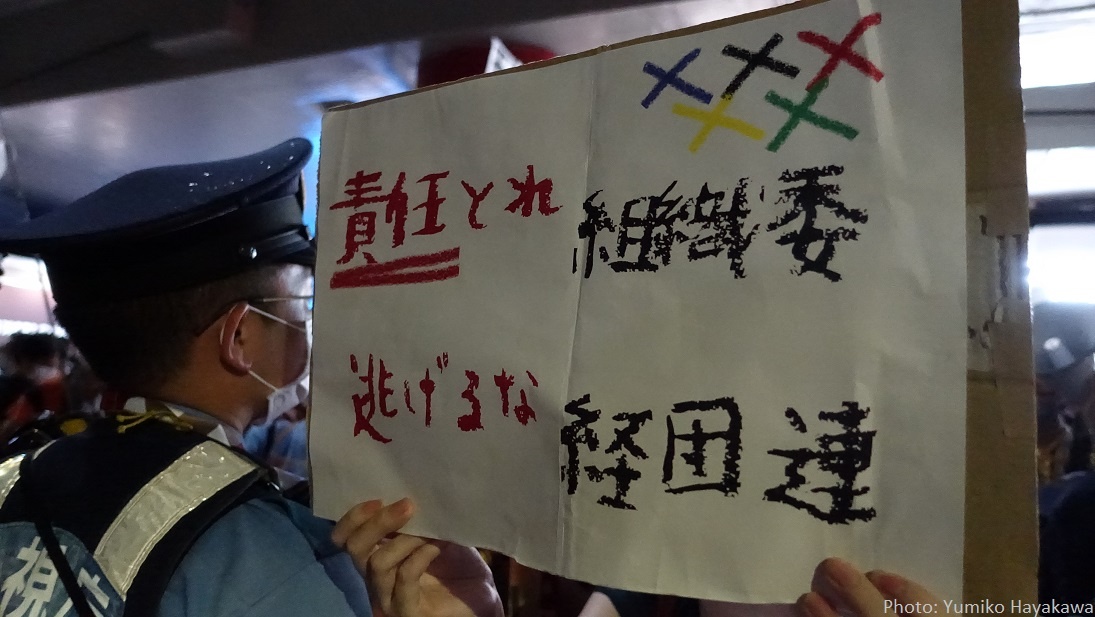 責任とれ 組織委
逃げるな 経団連
視庁
Photo: Yumiko Hayakawa